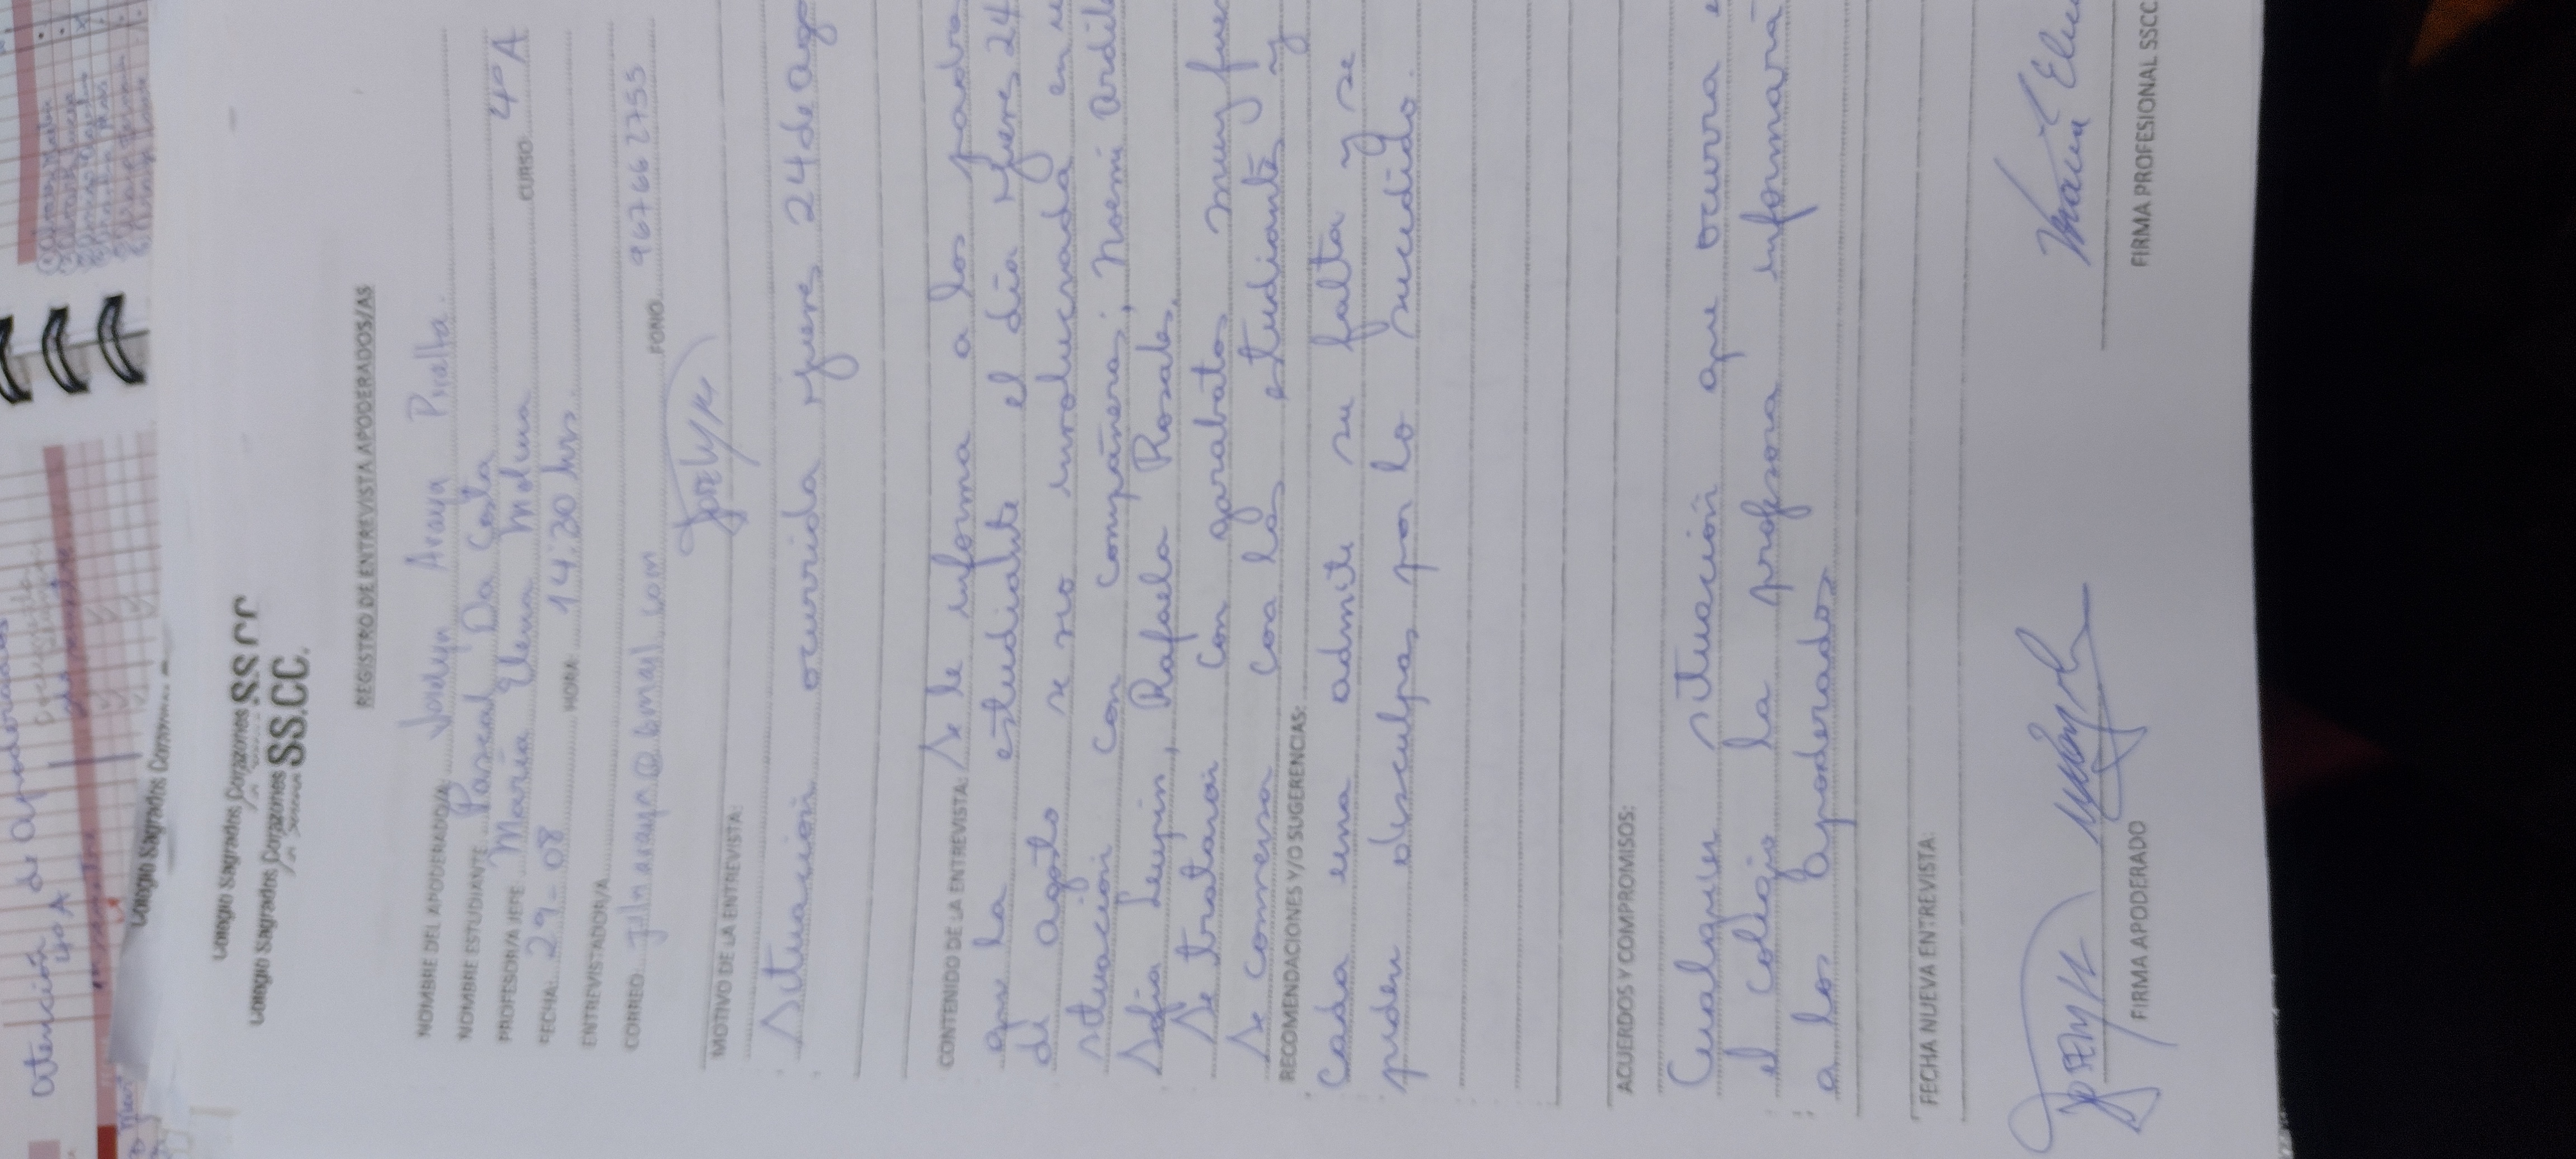 Atención de apoderados
4°A
Colegio Sagrados Corazones
Colegio Sagrados Corazones SS.CC.
Colegio Sagrados Corazones SS.CC.
REGISTRO DE ENTREVISTA APODERADOS/AS
NOMBRE DEL APODERADO/A: Joselyn Araya Piralta.
NOMBRE ESTUDIANTE Pascal Da Costa
PROFESOR/A JEFE María Elena Molina CURSO 4°A
FECHA: 29-08 HORA: 14:30 hrs.
ENTREVISTADOR/A
CORREO FONO 967662755
MOTIVO DE LA ENTREVISTA:
Situación ocurrida jueves 24 de ago
CONTENIDO DE LA ENTREVISTA: Se le informa a los padres
que la estudiante el día jueves 24
de agosto se vio involucrada en
situación con compañeras; Noemi Ardil
Sofía Leupin, Rafaela Rosales.
Se trataron con garabatos muy fuer
Se conversa con las estudiantes y
RECOMENDACIONES Y/O SUGERENCIAS:
Cada una admite su falta y se
piden disculpas por lo sucedido.
ACUERDOS Y COMPROMISOS:
Cualquier situación que ocurra e
el colegio la profesora informará
a los apoderados
FECHA NUEVA ENTREVISTA:
FIRMA APODERADO
FIRMA PROFESIONAL SSCC